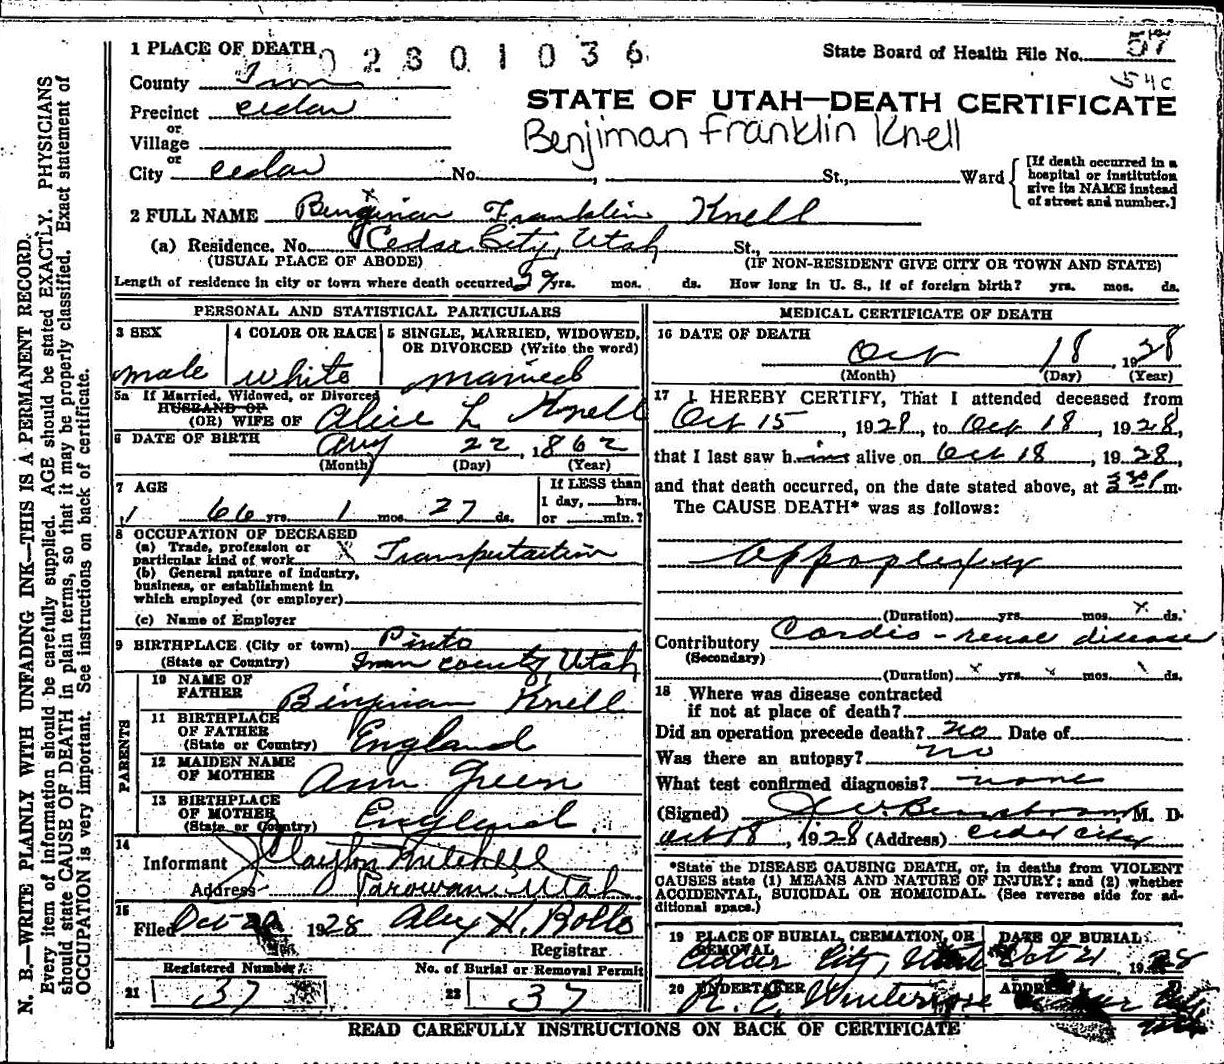 1 PLACE OF DEATH 02801036 State Board of Health File No. 57
County Iron 54c
Precinct cedar STATE OF UTAH—DEATH CERTIFICATE
or Benjiman Franklin Knell
Village
or
City cedar No. , St., Ward [If death occurred in a hospital or institution give its NAME instead of street and number.]
2 FULL NAME Benjiman Franklin Knell
(a) Residence. No. Cedar City, Utah St.,
(USUAL PLACE OF ABODE) (IF NON-RESIDENT GIVE CITY OR TOWN AND STATE)
Length of residence in city or town where death occurred yrs. mos. ds. How long in U. S., if of foreign birth? yrs. mos. ds.
PERSONAL AND STATISTICAL PARTICULARS
3 SEX
male
4 COLOR OR RACE
white
5 SINGLE, MARRIED, WIDOWED,
OR DIVORCED (Write the word)
married
5a If Married, Widowed, or Divorced
HUSBAND OF
(OR) WIFE OF Alice L Knell
6 DATE OF BIRTH Aug 22, 1862
(Month) (Day) (Year)
7 AGE
66 yrs. 1 mos. 27 ds.
If LESS than
1 day, hrs.
or min.?
8 OCCUPATION OF DECEASED
(a) Trade, profession or
particular kind of work X Transportation
(b) General nature of industry,
business, or establishment in
which employed (or employer)
(c) Name of Employer
9 BIRTHPLACE (City or town) Pinto
(State or Country) Iron county, Utah
PARENTS
10 NAME OF
FATHER Binjiman Knell
11 BIRTHPLACE
OF FATHER
(State or Country) England
12 MAIDEN NAME
OF MOTHER Ann Green
13 BIRTHPLACE
OF MOTHER
(State or Country) England
14
Informant Clayton Mitchell
Address Parowan Utah
15
Filed Oct 20 1928 Alex H. Rollo
Registrar
Registered Number
21 37
No. of Burial or Removal Permit
22 37
MEDICAL CERTIFICATE OF DEATH
16 DATE OF DEATH
Oct 18, 1928
(Month) (Day) (Year)
17 I HEREBY CERTIFY, That I attended deceased from
Oct 15, 1928, to Oct 18, 1928,
that I last saw h im alive on Oct 18, 1928,
and that death occurred, on the date stated above, at m.
The CAUSE DEATH* was as follows:
Appoplexy
(Duration) yrs. mos. x ds.
Contributory Cardio-renal disease
(Secondary)
(Duration) x yrs. x mos. ds.
18 Where was disease contracted
if not at place of death?
Did an operation precede death? no Date of
Was there an autopsy? no
What test confirmed diagnosis? none
(Signed) M. D.
Oct 18, 1928 (Address) cedar city
*State the DISEASE CAUSING DEATH, or, in deaths from VIOLENT
CAUSES state (1) MEANS AND NATURE OF INJURY; and (2) whether
ACCIDENTAL, SUICIDAL OR HOMICIDAL. (See reverse side for ad-
ditional space.)
19 PLACE OF BURIAL, CREMATION, OR
REMOVAL
Cedar City, Utah
DATE OF BURIAL
Oct 21, 1928
20 UNDERTAKER
ADDRESS
Cedar City
READ CAREFULLY INSTRUCTIONS ON BACK OF CERTIFICATE
N. B.—WRITE PLAINLY WITH UNFADING INK—THIS IS A PERMANENT RECORD.
Every item of information should be carefully supplied. AGE should be stated EXACTLY. PHYSICIANS
should state CAUSE OF DEATH in plain terms, so that it may be properly classified. Exact statement of
OCCUPATION is very important. See instructions on back of certificate.